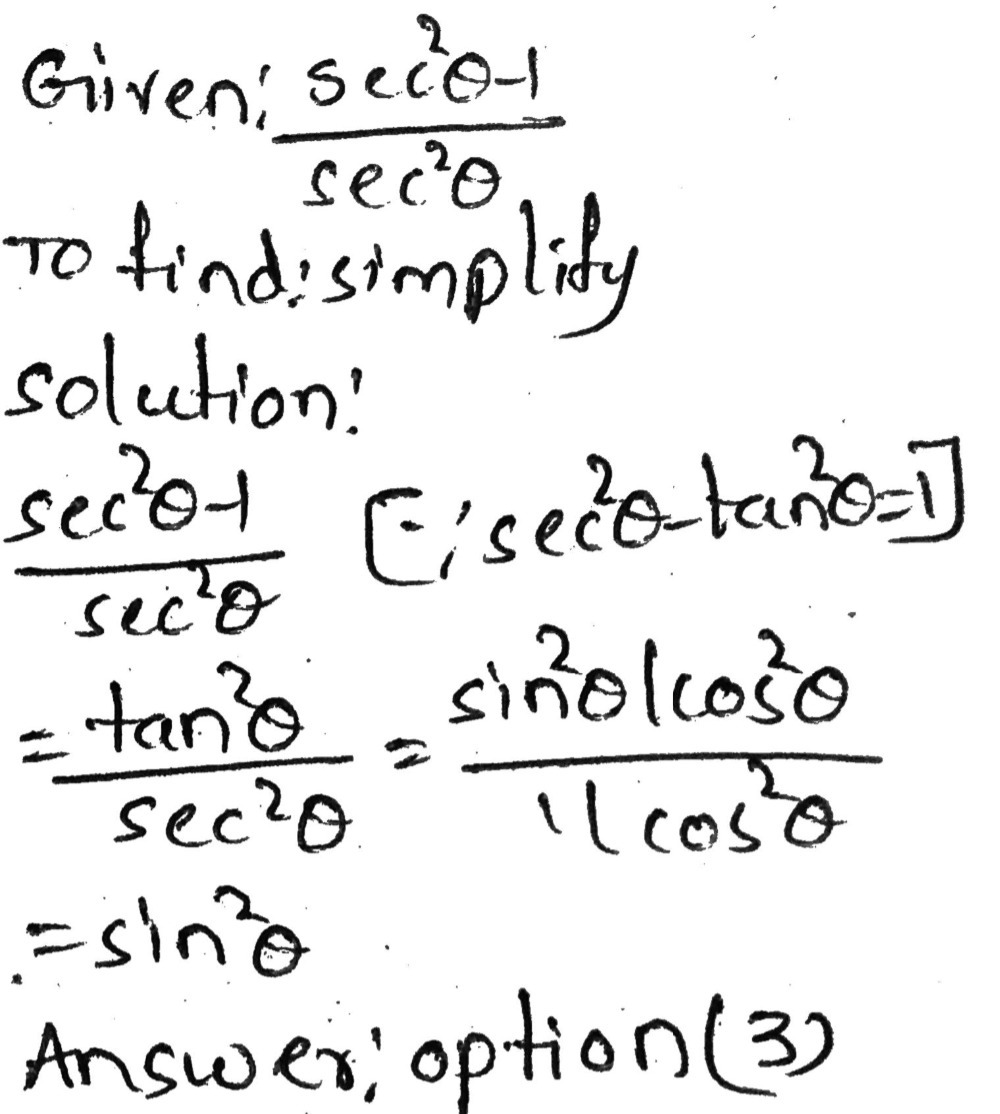 Given: sec²θ-1
sec²θ
To find: simplify
solution:
sec²θ-1 [∵ sec²θ-tan²θ=1]
sec²θ
= tan²θ = sin²θ/cos²θ
sec²θ 1/cos²θ
= sin²θ
Answer: option (3)